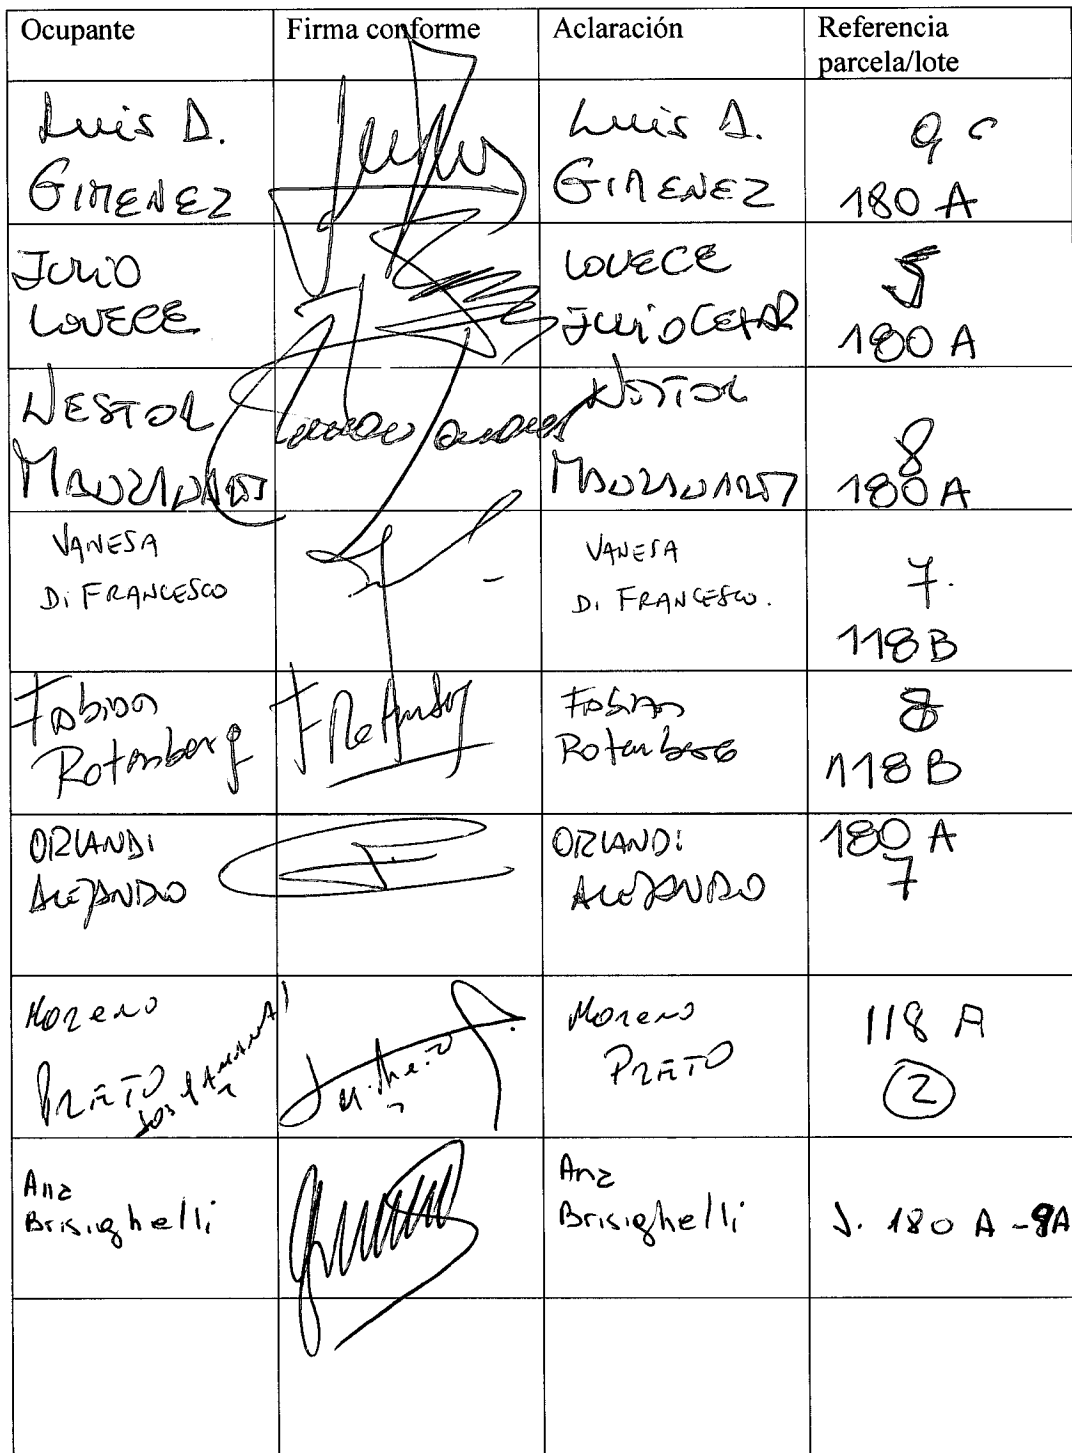 Ocupante
Firma conforme
Aclaración
Referencia
parcela/lote
Luis D.
GIMENEZ
Luis D.
GIMENEZ
9 C
180 A
JULIO
LOVECE
LOVECE
JULIO CESAR
5
180 A
NESTOR
NESTOR
8
180 A
VANESA
DI FRANCESCO
VANESA
DI FRANCESCO.
7.
118 B
Fabian
Rotenberg
Fabian
Rotenberg
8
118 B
ORLANDI
ALEJANDRO
ORLANDI
ALEJANDRO
180 A
7
Moreno
PRETO
Moreno
PRETO
118 A
2
Ana
Brisighelli
Ana
Brisighelli
J. 180 A - 9A